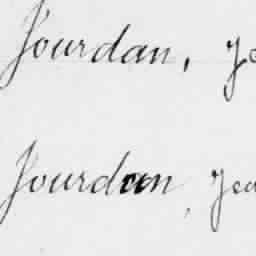 Jourdan, Je
Jourdan, Jea